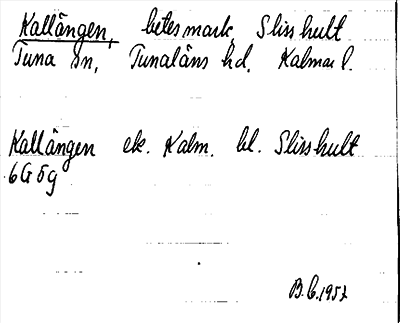 Kallängen, betesmark, Slisshult
Tuna sn, Tunaläns hd. Kalmar l.
Kallängen ek. Kalm. bl. Slisshult
6G5g
B.C. 1957